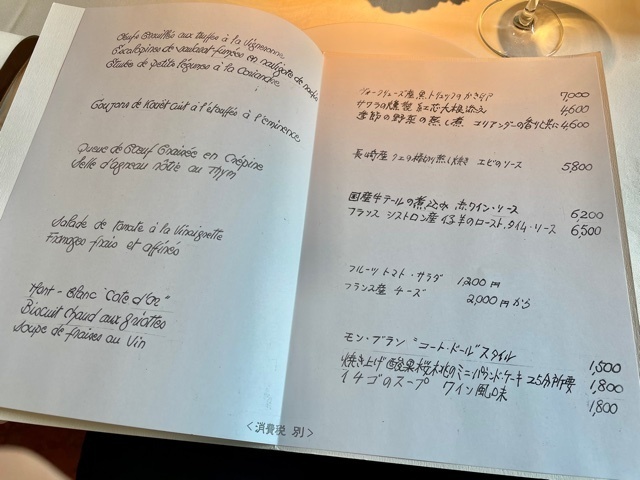 Oeufs Brouillés aux truffes à la Vigneronne
Escalopines de
Etuvée de petits légumes à la Coriandre
Goujons de cuit à l'étouffée à l'éminence
Queue de Boeuf Braisée en Crépine
Selle d'agneau rôtie au Thym
Salade de Tomate à la Vinaigrette
Fromages frais et affinés
Mont-Blanc "Cote d'Or"
Biscuit Chaud aux griottes
Soupe de fraises au Vin
<消費税 別>
ヴォークリューズ産 黒トリュフ入りかき玉子 7,000
サワラの燻製 紅芯大根添え 4,600
季節の野菜の蒸し煮 コリアンダーの香りと共に 4,600
長崎産 クエの蒸し焼き エビのソース 5,800
国産牛テールの煮込み 赤ワイン・ソース 6,200
フランス シストロン産 仔羊のロースト、タイム・ソース 6,500
フルーツトマト・サラダ 1,200円
フランス産 チーズ 2,000円から
モン・ブラン "コート・ドール" スタイル 1,500
焼き上げ 酸果桜桃のミニパウンド・ケーキ 25分所要 1,800
イチゴのスープ ワイン風味 1,800